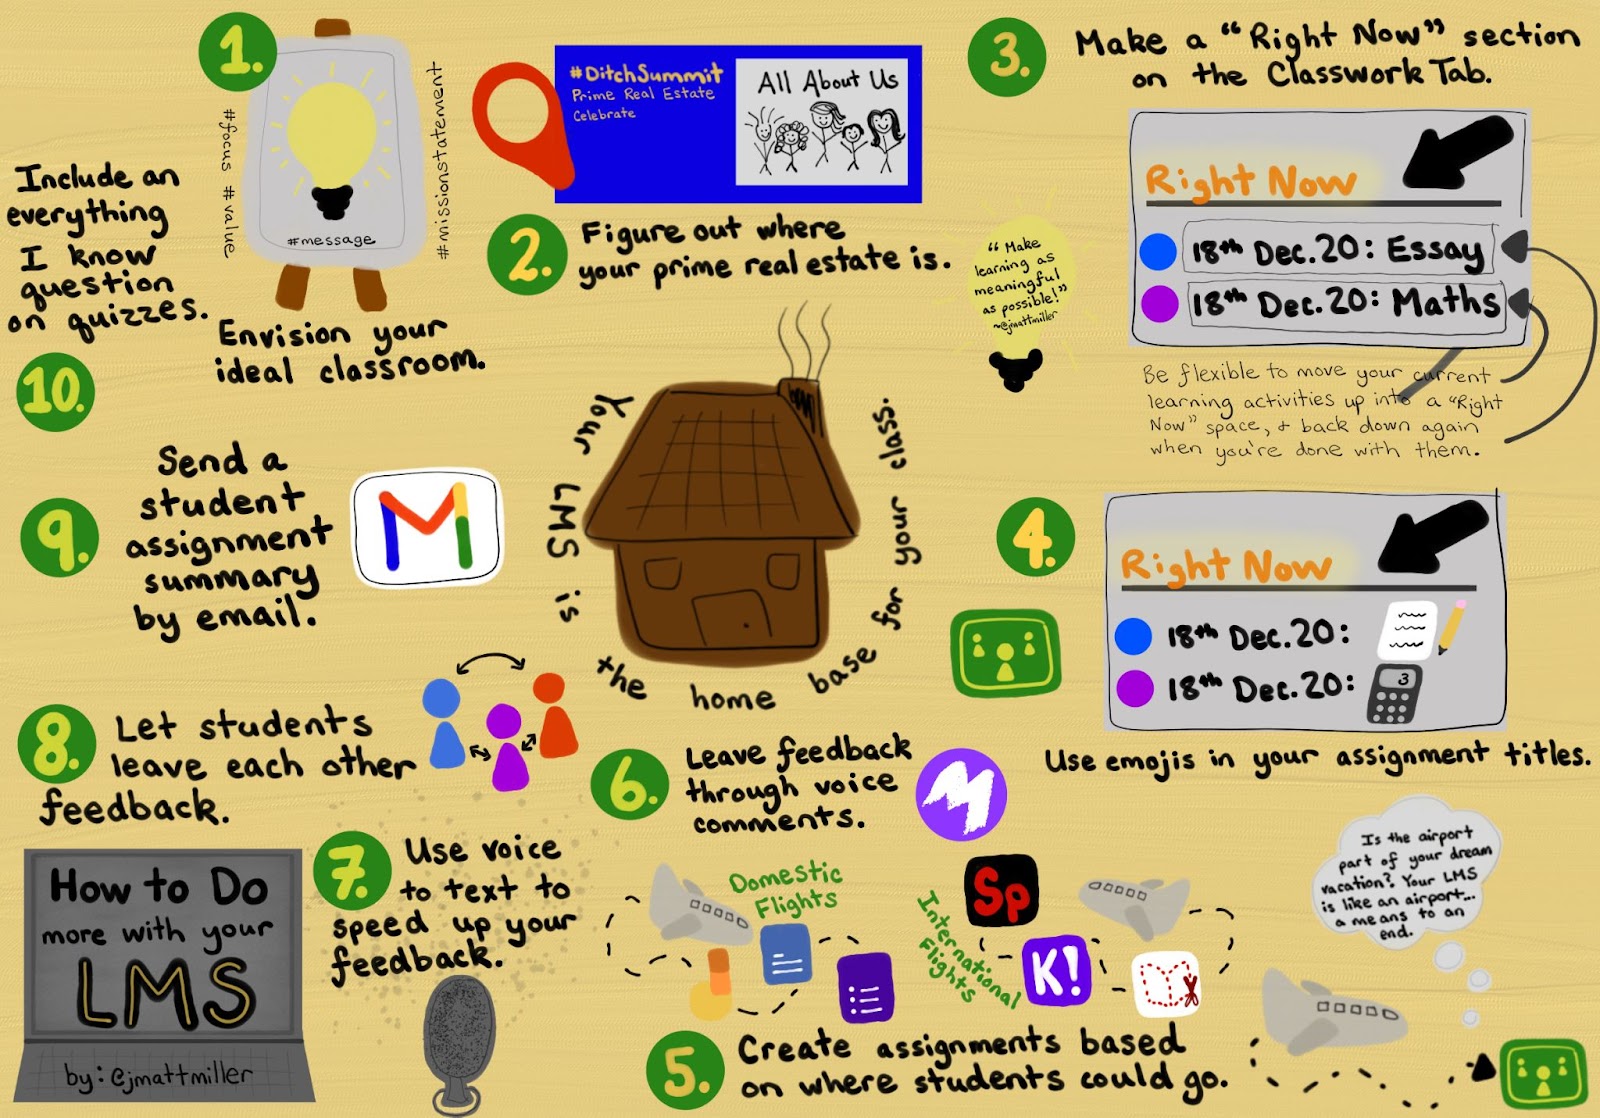 1.
#focus #value
#message
#missionstatement
Envision your
ideal classroom.
#DitchSummit
Prime Real Estate
Celebrate
All About Us
2.
Figure out where
your prime real estate is.
"Make
learning as
meaningful
as possible!"
~@jmattmiller
3.
Make a "Right Now" section
on the Classwork Tab.
Right Now
18th Dec.20: Essay
18th Dec.20: Maths
Be flexible to move your current
learning activities up into a "Right
Now" space, + back down again
when you're done with them.
4.
Right Now
18th Dec.20:
18th Dec.20:
3
Use emojis in your assignment titles.
Your LMS is the home base for your class.
Is the airport
part of your dream
vacation? Your LMS
is like an airport...
a means to an
end.
Domestic
Flights
International
Flights
Sp
K!
5.
Create assignments based
on where students could go.
6.
Leave feedback
through voice
comments.
7.
Use voice
to text to
speed up your
feedback.
8.
Let students
leave each other
feedback.
9.
Send a
student
assignment
summary
by email.
M
10.
Include an
everything
I know
question
on quizzes.
How to Do
more with your
LMS
by: @jmattmiller